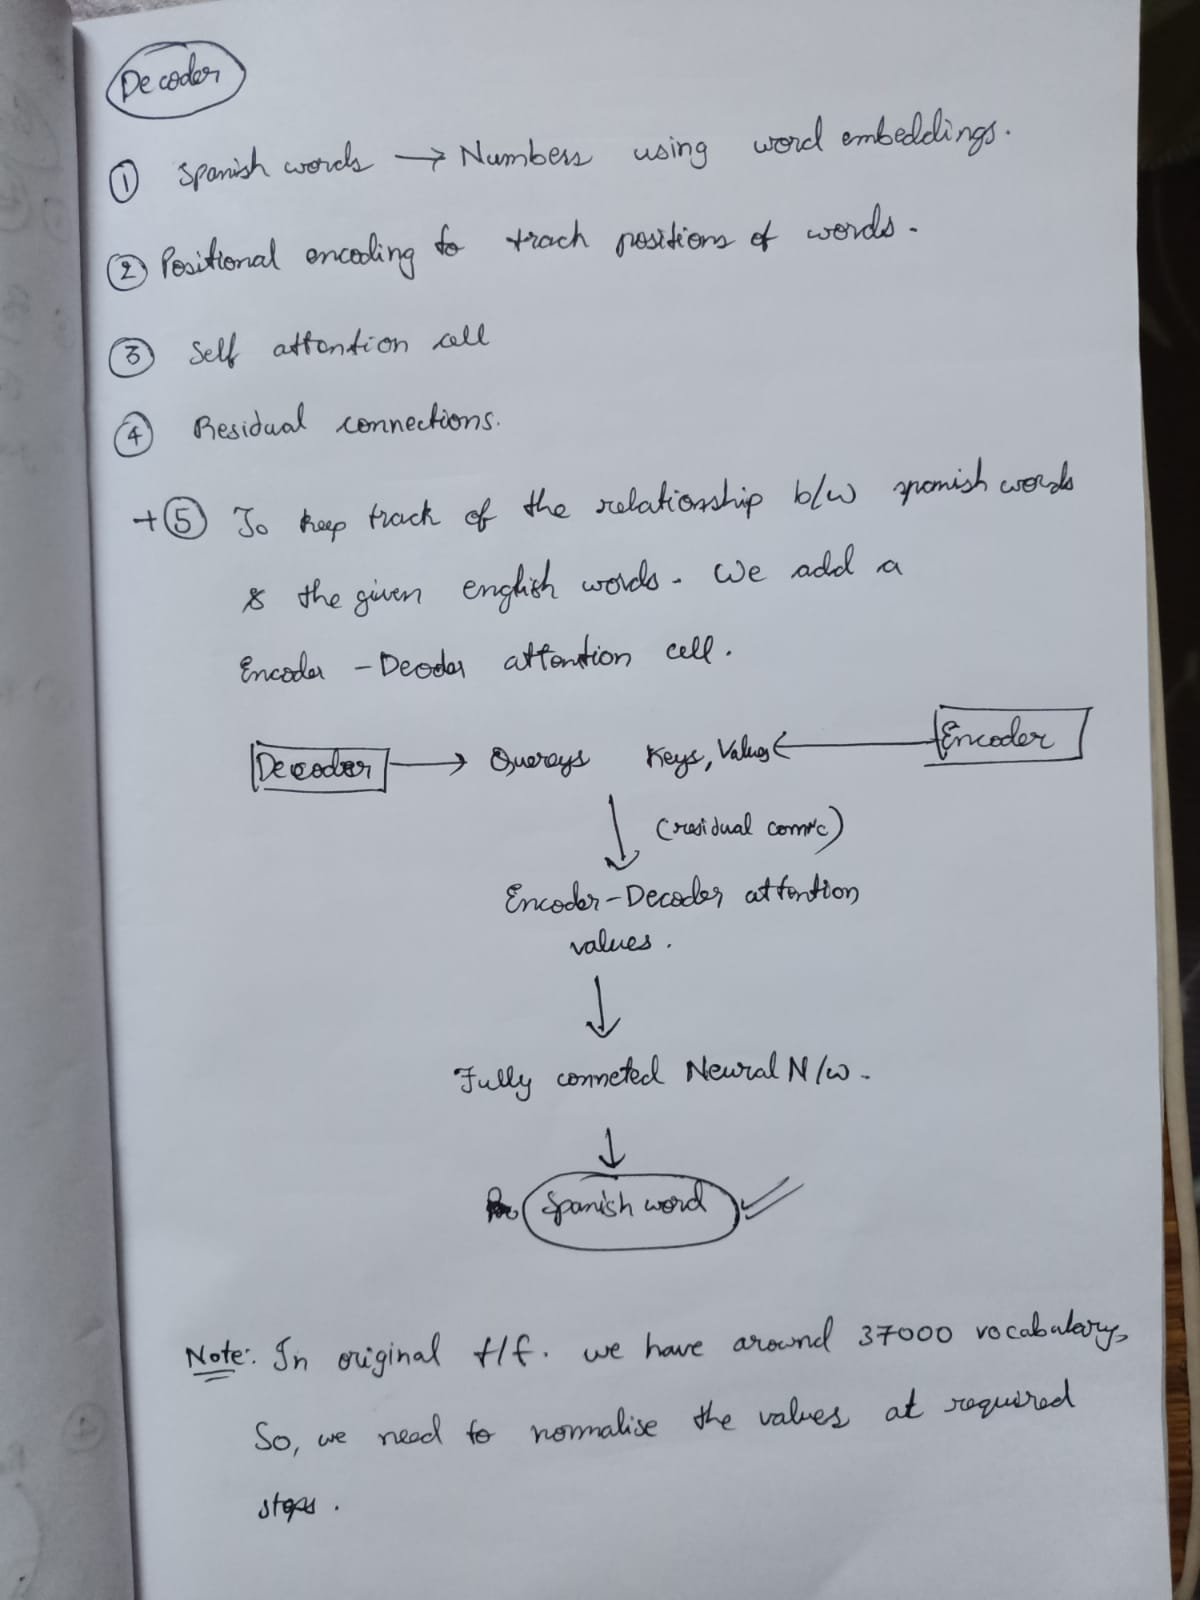 Decoder
① Spanish words → Numbers using word embeddings.
② Positional encoding to track positions of words.
③ Self attention cell
④ Residual connections.
+⑤ To keep track of the relationship b/w spanish words
& the given english words. We add a
Encoder - Deoder attention cell.
Decoder → Quereys Keys, Values ← Encoder
↓ (residual connc)
Encoder-Decoder attention
values.
↓
Fully conneted Neural N/w.
↓
Spanish word
Note: In original t/f. we have around 37000 vocabulary,
So, we need to normalise the values at required
steps.